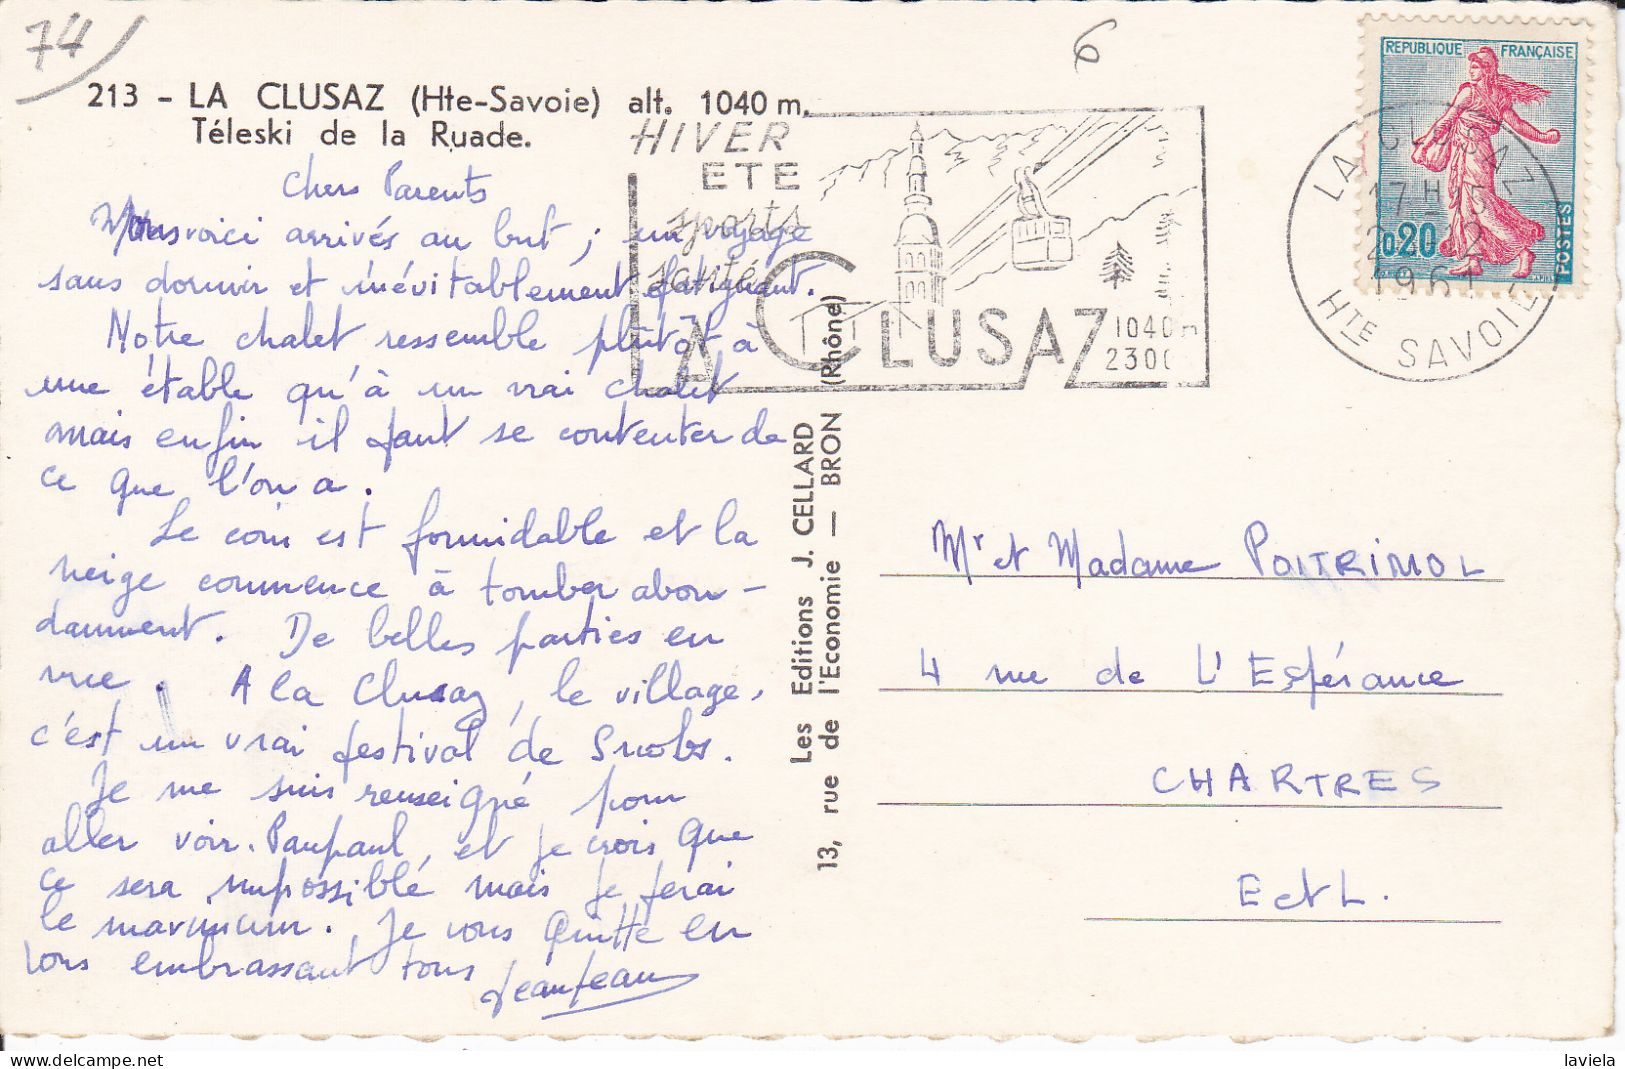 74
6
213 - LA CLUSAZ (Hte-Savoie) alt. 1040 m.
Téleski de la Ruade.
Chers Parents
Nous voici arrivés au but ; un voyage
sans dormir et inévitablement fatiguant.
Notre chalet ressemble plutôt à
une étable qu'à un vrai chalet
mais enfin il faut se contenter de
ce que l'on a.
Le coin est formidable et la
neige commence à tomber abon-
damment. De belles parties en
vue. A la Clusaz, le village,
c'est un vrai festival de Snobs.
Je me suis renseigné pour
aller voir Paupaul, et je crois que
ce sera impossible mais je ferai
le maximum. Je vous quitte en
vous embrassant tous
Jeanjean
HIVER
ETE
sports
santé
LA CLUSAZ
1040 m
2300
Les Editions J. CELLARD
13, rue de l'Economie — BRON (Rhône)
REPUBLIQUE FRANÇAISE
0.20
POSTES
LA CLUSAZ
17 H 15
HTE SAVOIE
Mr et Madame POITRIMOL
4 rue de L'Espérance
CHARTRES
E et L.
laviela